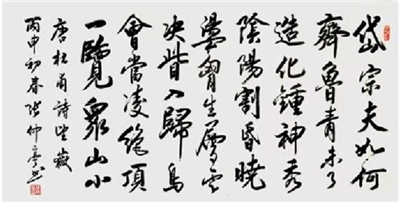 岱宗夫如何
齊魯青未了
造化鍾神秀
陰陽割昏曉
盪胷生層云
決眥入歸鳥
會當凌絕頂
一覽衆山小
唐杜甫詩望嶽
丙申初春張仲亭書